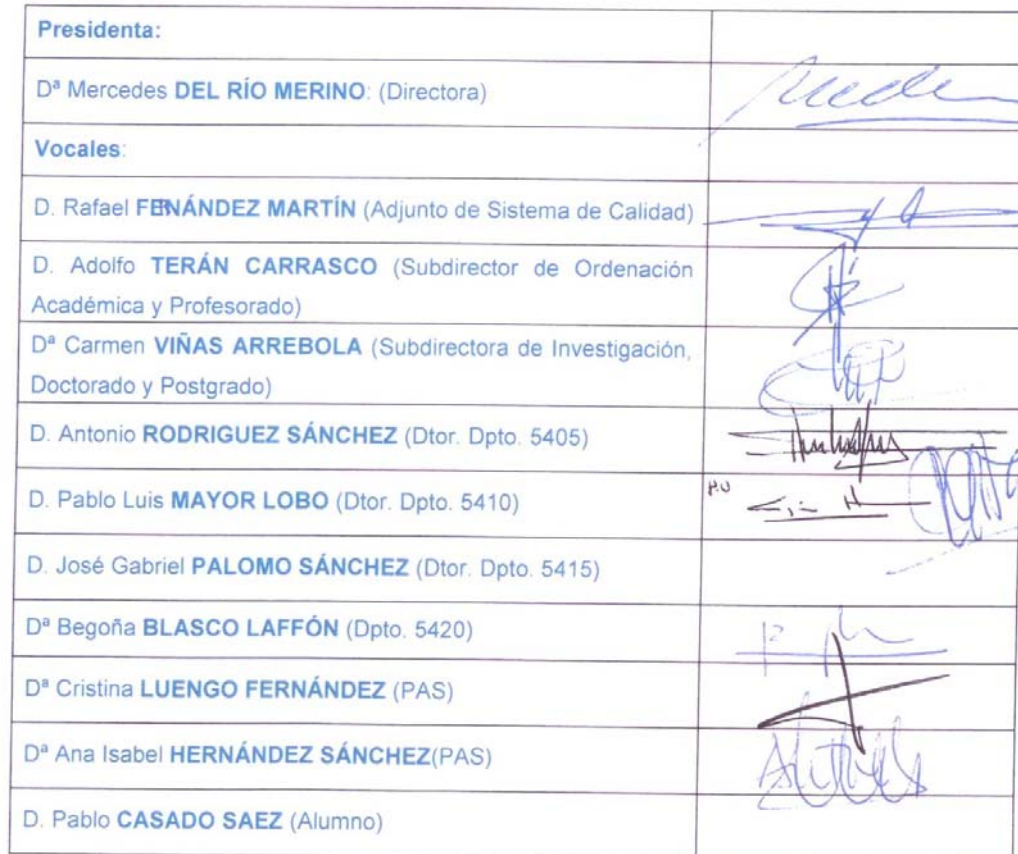 Presidenta:
Dª Mercedes DEL RÍO MERINO: (Directora)
Vocales:
D. Rafael FENÁNDEZ MARTÍN (Adjunto de Sistema de Calidad)
D. Adolfo TERÁN CARRASCO (Subdirector de Ordenación
Académica y Profesorado)
Dª Carmen VIÑAS ARREBOLA (Subdirectora de Investigación,
Doctorado y Postgrado)
D. Antonio RODRIGUEZ SÁNCHEZ (Dtor. Dpto. 5405)
D. Pablo Luis MAYOR LOBO (Dtor. Dpto. 5410)
D. José Gabriel PALOMO SÁNCHEZ (Dtor. Dpto. 5415)
Dª Begoña BLASCO LAFFÓN (Dpto. 5420)
Dª Cristina LUENGO FERNÁNDEZ (PAS)
Dª Ana Isabel HERNÁNDEZ SÁNCHEZ(PAS)
D. Pablo CASADO SAEZ (Alumno)